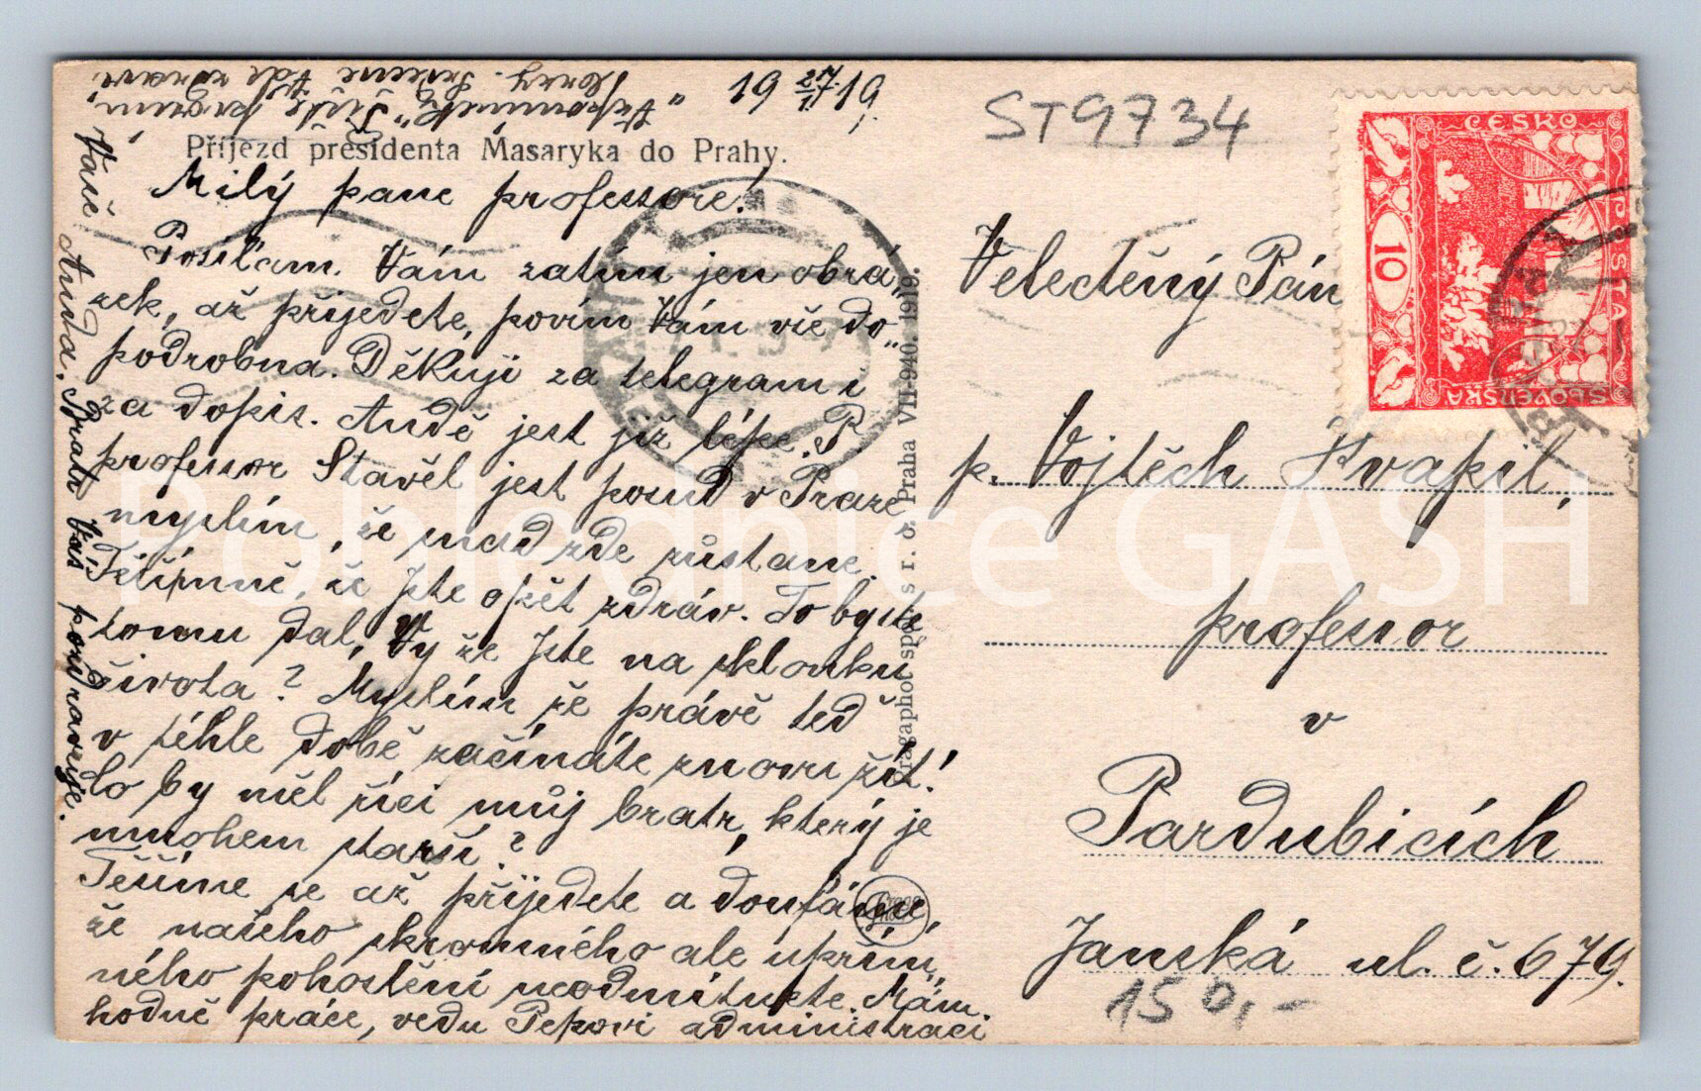 19 27/1 19
ST9734
Příjezd presidenta Masaryka do Prahy.
Milý pane professore!
Posílám Vám zatím jen obrá„
zek, až přijedete, povím Vám vše do„
podrobna. Děkuji za telegram i
za dopis. Andě jest již lépe. P.
professor Stavěl jest posud v Praze
myslím, že snad zde zůstane.
Těšípmně, že Jste opět zdráv. To byste
tomu dal, Vy že Jste na sklonku
života? Myslím že právě teď
v téhle době začínáte znovu žít!
Co by měl říci můj bratr, který je
mnohem starší?
Těšíme se až přijedete a doufáme,
že našeho skromného ale upřím„
ného pohostění neodmítnete. Mám
hodně práce, vedu Pepovi administraci
„Vzpomínek“
Srdečně Vás zdraví
Vaše Anda. Bratr Vás pozdravuje.
Pragaphot spol. s r. o. Praha VII-940. 1919.
ČESKO
SLOVENSKÁ
POŠTA
10
Velectěný Pán
p. Vojtěch Kvapil,
professor
v
Pardubicích
Janská ul. č. 679.
150,-
Pohlednice GASH